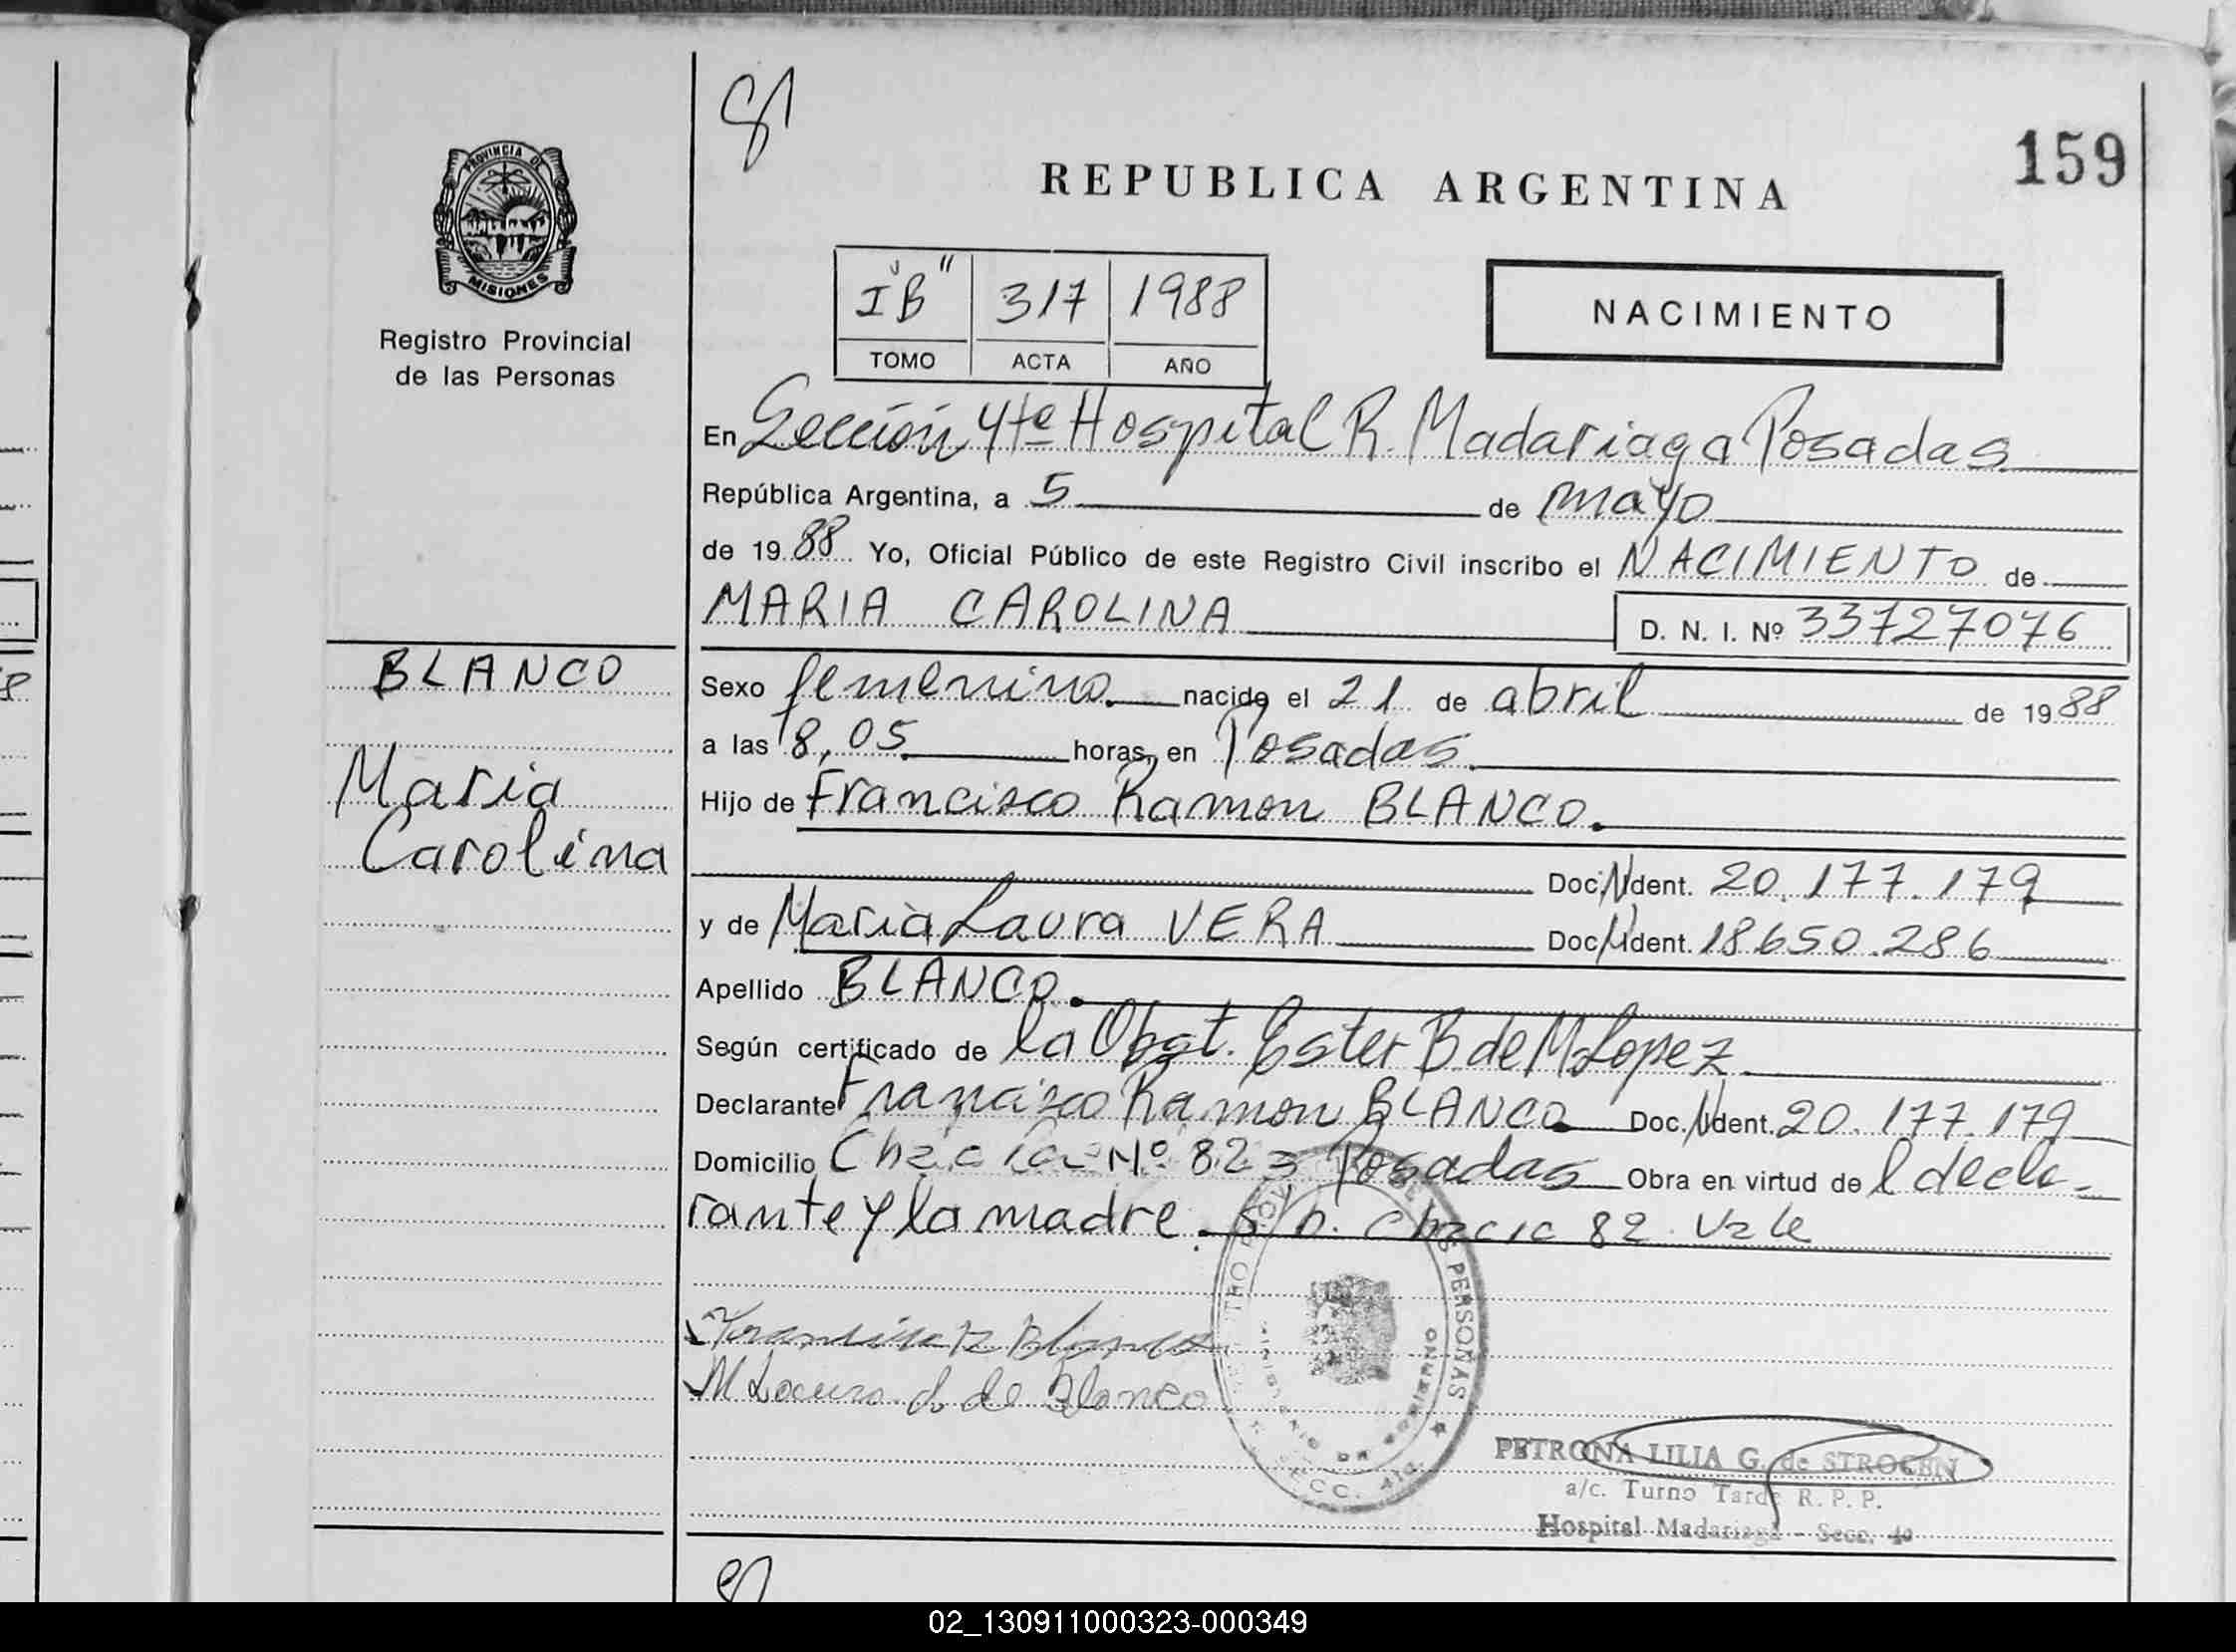 PROVINCIA DE
MISIONES
Registro Provincial
de las Personas
BLANCO
Maria
Carolina
159
REPUBLICA ARGENTINA
I "B" 317 1988
TOMO ACTA AÑO
NACIMIENTO
En Sección 4ta Hospital R. Madariaga Posadas
República Argentina, a 5 de mayo
de 1988 Yo, Oficial Público de este Registro Civil inscribo el NACIMIENTO de
MARIA CAROLINA D. N. I. Nº 33727076
Sexo femenino. nacido el 21 de abril de 1988
a las 8,05 horas, en Posadas.
Hijo de Francisco Ramon BLANCO.
Doc. Ident. 20.177.179
y de Maria Laura VERA Doc. Ident. 18650.286
Apellido BLANCO.
Según certificado de la Obst. Ester B de M Lopez
Declarante Francisco Ramon BLANCO Doc. Ident. 20.177.179
Domicilio Nº 82 Posadas Obra en virtud de l decla-
rante y la madre. 82 Vale
Blanco
M Laura de Blanco
PERSONAS
SECC. 4ta.
PETRONA LILIA G. de STROGEN
a/c. Turno Tarde R. P. P.
Hospital Madariaga - Secc. 4a
02_130911000323-000349